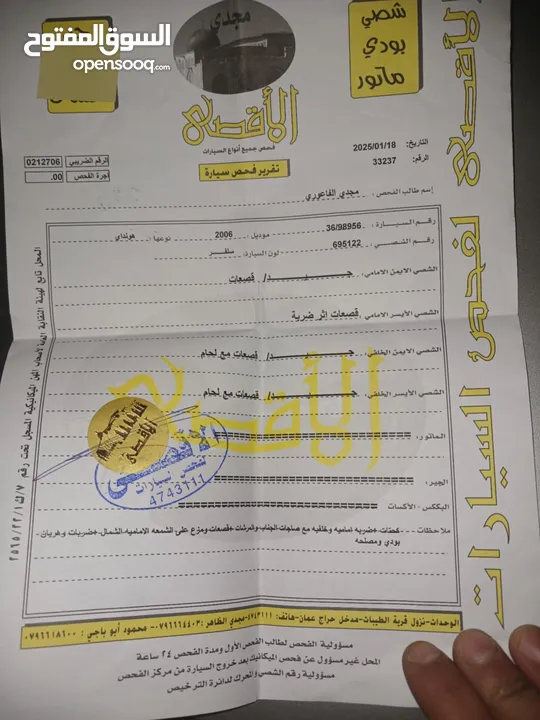 السوق المفتوح
opensooq.com
شصي
بودي
ماتور
مجدي
الأقصى
فحص جميع أنواع السيارات
تقرير فحص سيارة
التاريخ: 2025/01/18
الرقم: 33237
الرقم الضريبي 0212706
أجرة الفحص .00
إسم طالب الفحص : مجدي الفاعوري
رقم السيارة : 36/98956 موديل: 2006 نوعها: هونداي
رقم الشصي : 695122 لون السيارة: سلفر
الشصي الأيمن الامامي: جيد/ قصعات
الشصي الأيسر الامامي: قصعات إثر ضربة
الشصي الأيمن الخلفي: جيد/ قصعات مع لحام
الشصي الأيسر الخلفي: جيد/ قصعات مع لحام
الماتور:
الجير:
البككس - الأكسات
ملاحظات : كحتات+ضربه اماميه وخلفيه مع صاجات الجناب وفرشات+قصعات ومزع على الشمعه الاماميه الشمال+ضربات وهريان بودي ومصلحه
الأقصى
لفحص السيارات
4743111
الأقصى لفحص السيارات
المحل تابع لهيئة النقابة العامة لأصحاب المهن الميكانيكية المسجل تحت رقم
الوحدات-نزول قرية الطيبات-مدخل حراج عمان-هاتف: ٤٧٤٣١١١-مجدي الظاهر: ٠٧٩٦٦٦٤٤٠٣-محمود أبو ياجي: ٠٧٩٦٦١٨٦٠٠
مسؤولية الفحص لطالب الفحص الأول ومدة الفحص ٢٤ ساعة
المحل غير مسؤول عن فحص الميكانيك بعد خروج السيارة من مركز الفحص
مسؤولية رقم الشصي والمحرك لدائرة الترخيص